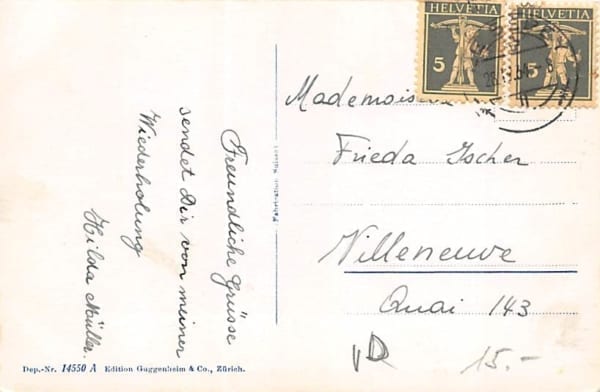 HELVETIA
5
HELVETIA
5
Mademoise
Frieda Ischer
Villeneuve
Quai 143
15.-
Freundliche Grüsse
sendet Dir von meiner
Wiederholung
Hilda Müller.
Fabrication Suisse
Dep.-Nr. 14550 A Edition Guggenheim & Co., Zürich.